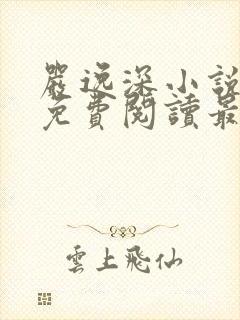 嚴逸深小說
免費閱讀最
雲上飛仙